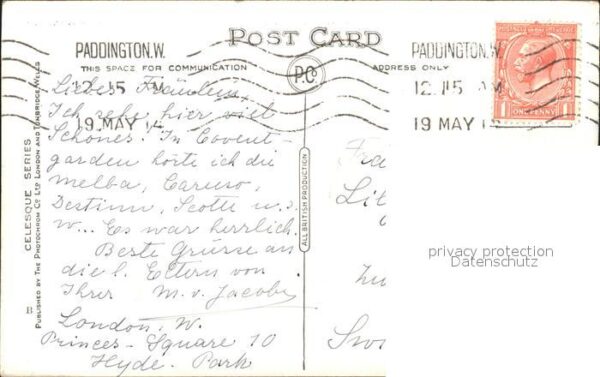 POST CARD
PADDINGTON.W.
12.15 AM
19 MAY 14
PADDINGTON.W.
12.15 AM
19 MAY 1
THIS SPACE FOR COMMUNICATION
P.Co
ADDRESS ONLY
POSTAGE
ONE PENNY
1
1
Liebes Fräulein,
Ich sehe hier viel
Schönes. In Covent-
garden hörte ich die
Melba, Caruso,
Destinn, Scotti u.s.
w... Es war herrlich.
Beste Grüsse an
die l. Eltern von
Ihrer M. v. Jacobi
London, W.
Princes-Square 10
Hyde-Park
CELESQUE SERIES
PUBLISHED BY THE PHOTOCHROM CO LTD LONDON AND TUNBRIDGE WELLS
B
ALL BRITISH PRODUCTION
privacy protection
Datenschutz